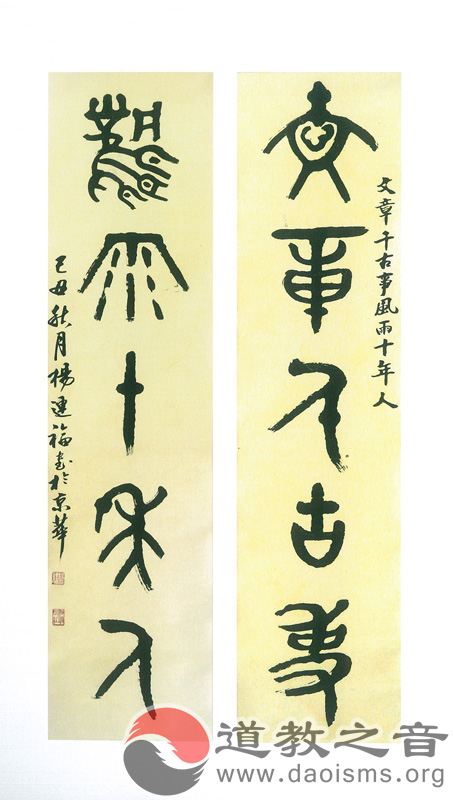 文章千古事風雨十年人
文章千古事
風雨十年人
己丑秋月楊連福書於京華
道教之音
www.daoisms.org